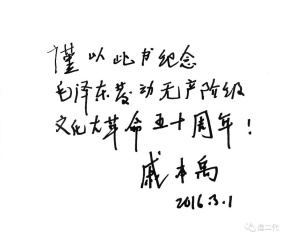 谨以此书纪念
毛泽东发动无产阶级
文化大革命五十周年！
戚本禹
2016.3.1
盘二代